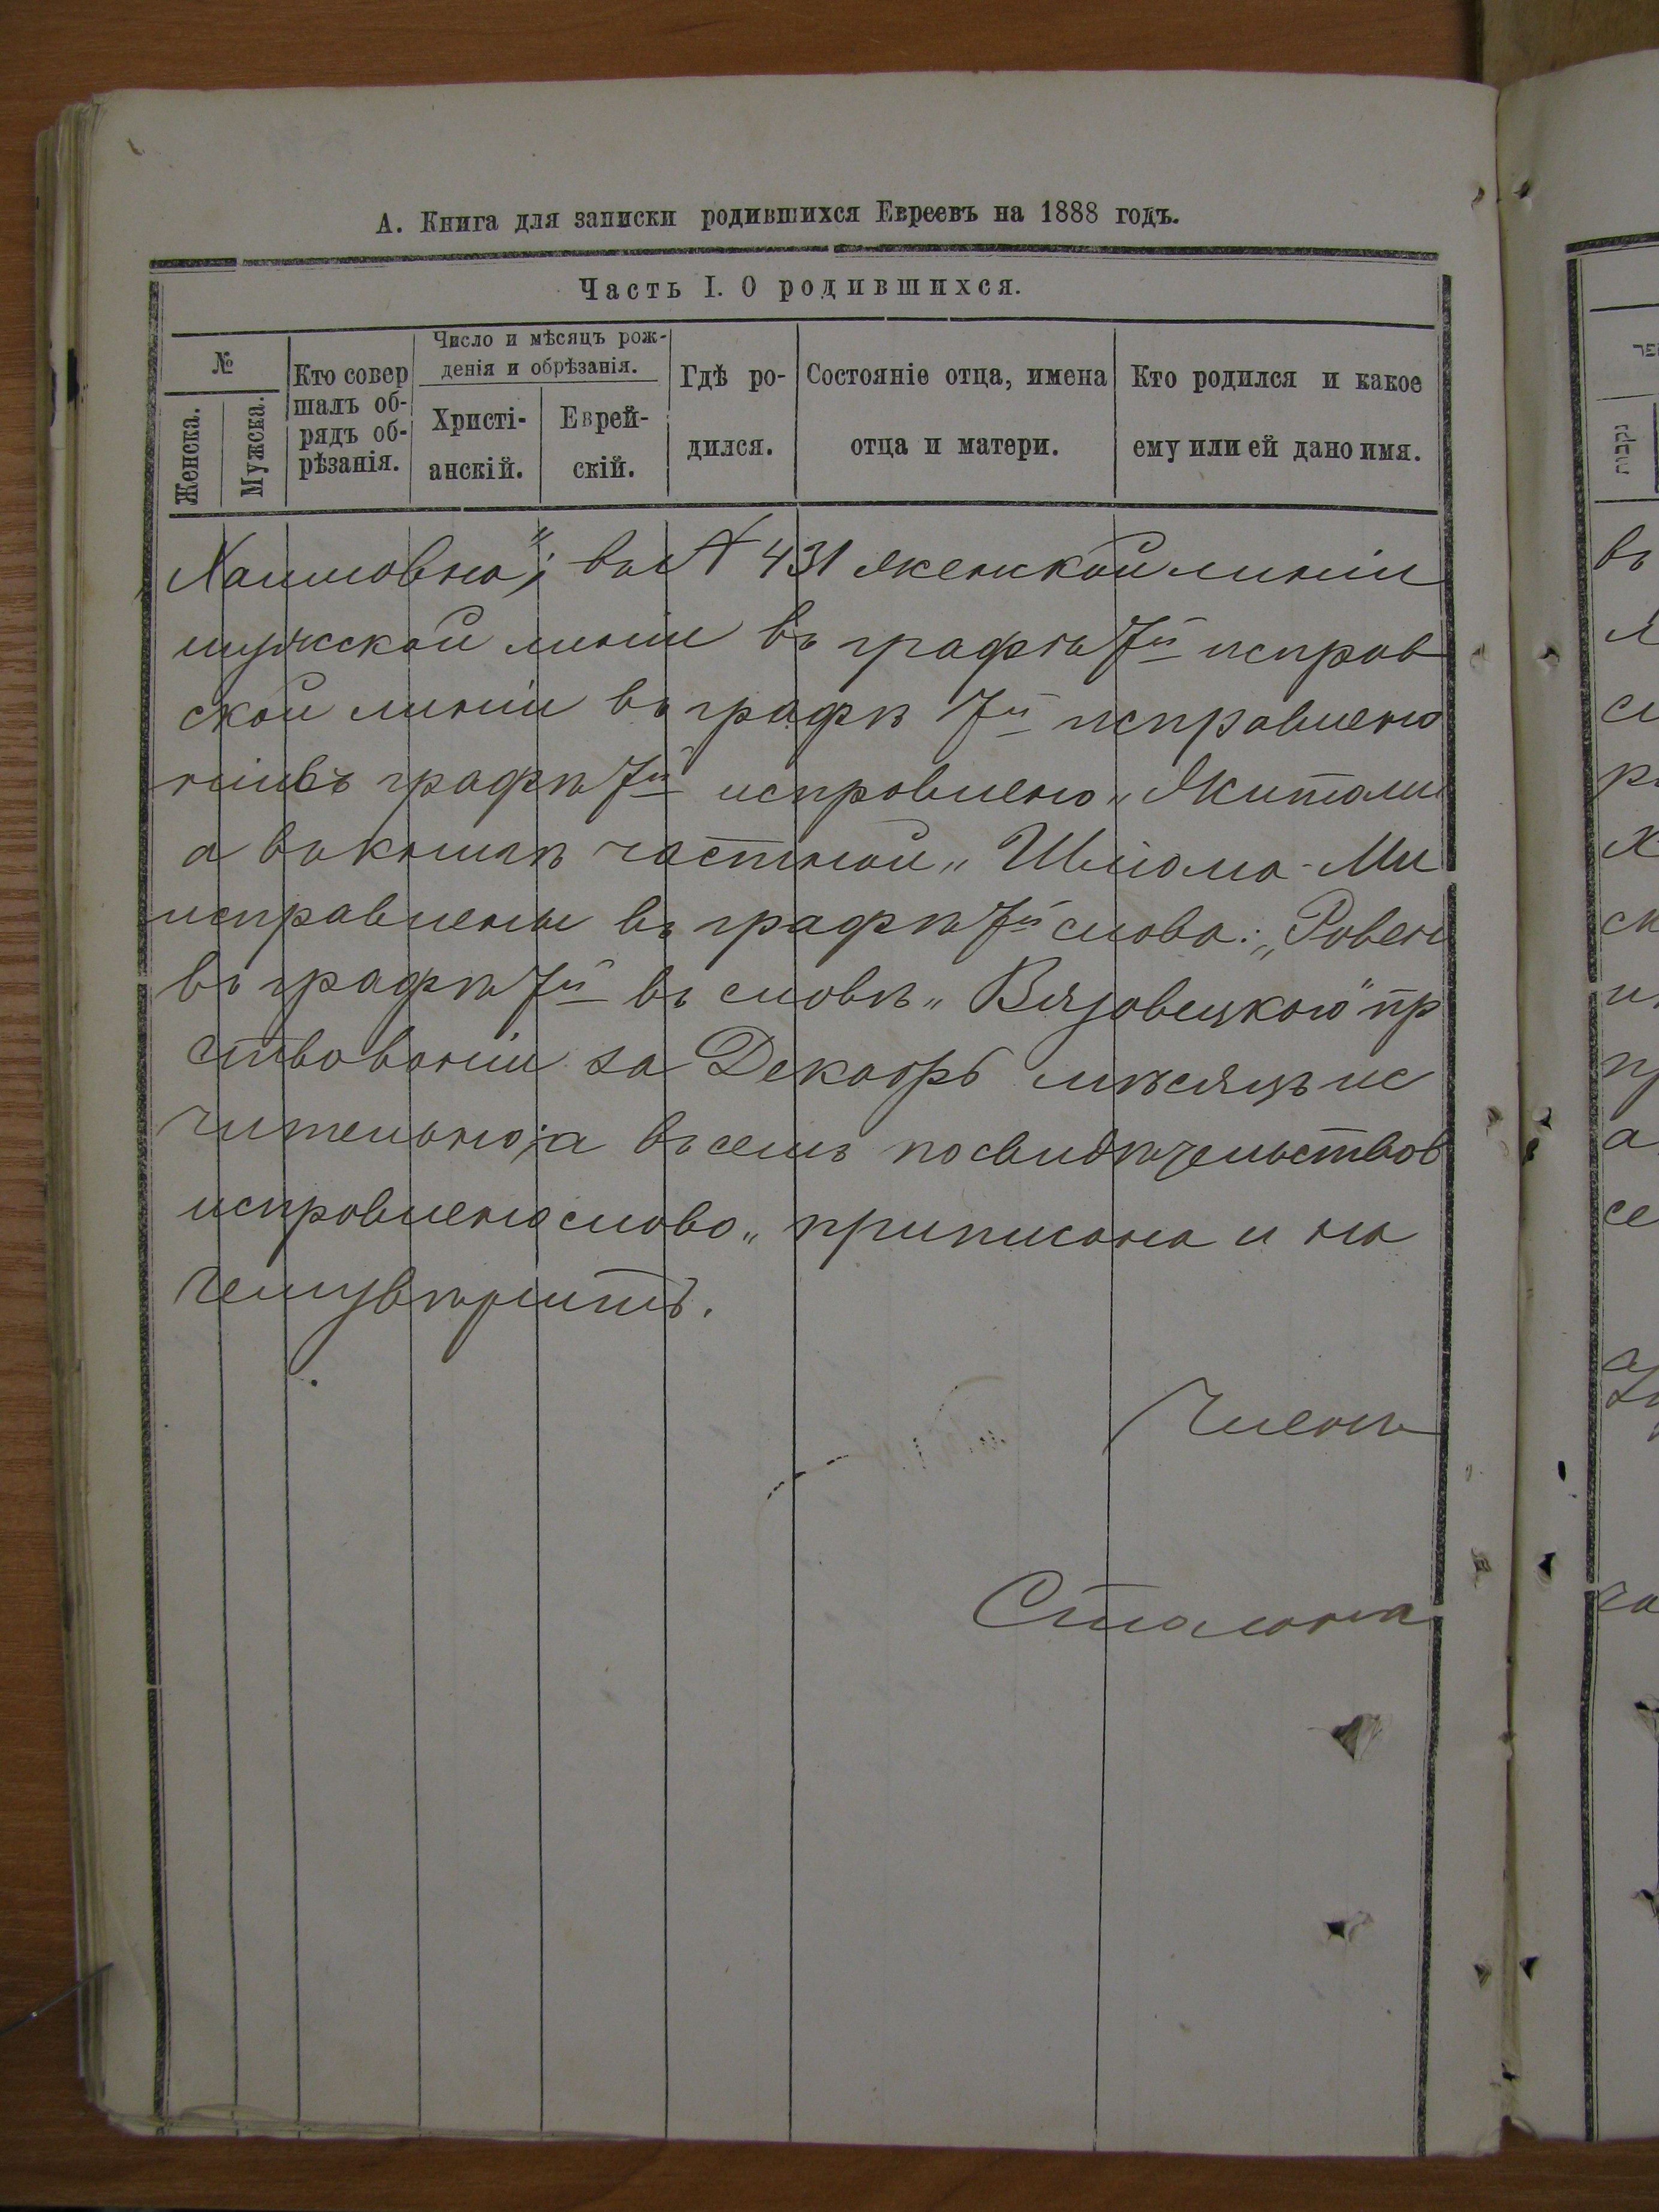 А. Книга для записки родившихся Евреевъ на 1888 годъ.
Часть I. О родившихся.
№
Женска.
Мужска.
Кто совер
шалъ об-
рядъ об-
рѣзанія.
Число и мѣсяцъ рож-
денія и обрѣзанія.
Христі-
анскій.
Еврей-
скій.
Гдѣ ро-
дился.
Состояніе отца, имена
отца и матери.
Кто родился и какое
ему или ей дано имя.
Хаимовна"; въ № 431 женской линіи
мужской линіи въ графѣ 7й исправ
ской линіи въ графѣ 7й исправлено
ніи въ графѣ 7й исправлено „Житоми
а въ концѣ частной „Шліома-Ми
исправлены въ графѣ 7й слова: „Ровен
въ графѣ 7й въ словѣ „Вязовецкого" пр
ствованіи за Декабрь мѣсяцъ ис
чительно; а въ семъ посвидѣтельствов
исправлено слово „приписана и на
чему вѣритъ.
Членъ
נקבות
въ